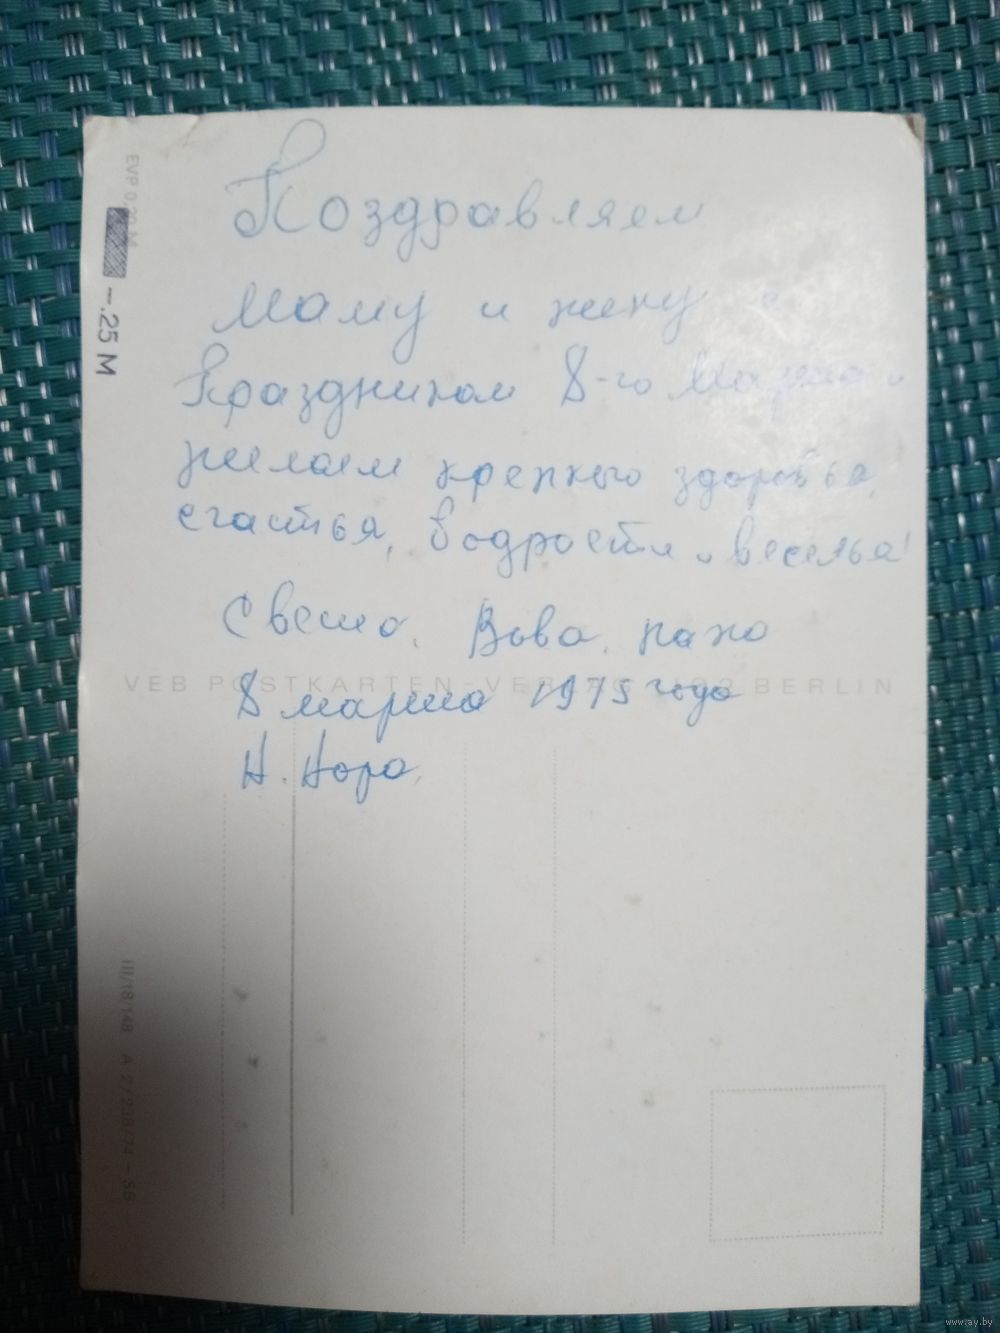 Поздравляем
Маму и жену с
Праздником 8-го Марта и
желаем крепкого здоровья,
счастья, бодрости и веселья!
Света, Вова, папа
VEB POSTKARTEN-VERLAG BERLIN
8 марта 1975 года
Н. Нора
EVP 0,20 M
-.25 M
III/18/148 A 2/228/74-56
www.ay.by